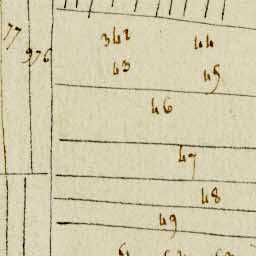 77
976
342 44
43 45
46
47
48
49